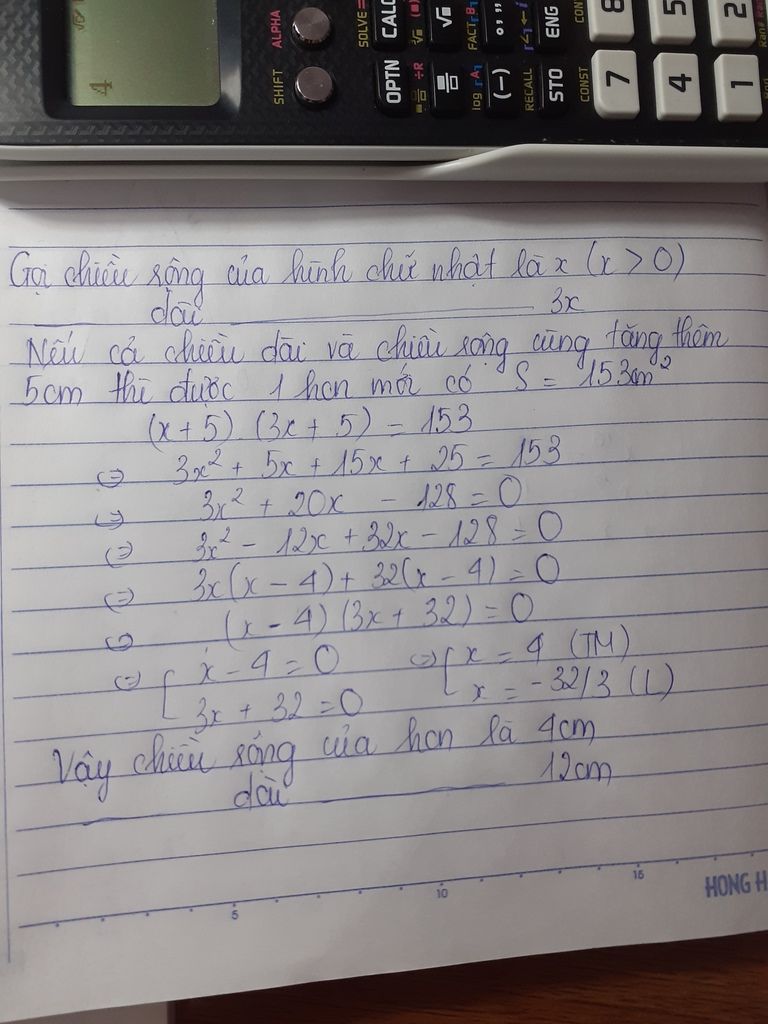 4
SHIFT
ALPHA
SOLVE=
CALC
OPTN
√■
FACT B
÷R
log A
(−)
° ' "
ENG
RECALL
STO
CONST
CON
7
8
4
5
1
2
Gọi chiều rộng của hình chữ nhật là x (x > 0)
dài 3x
Nếu cả chiều dài và chiều rộng cùng tăng thêm
5cm thì được 1 hcn mới có S = 153cm²
(x + 5) . (3x + 5) = 153
⇔ 3x² + 5x + 15x + 25 = 153
⇔ 3x² + 20x - 128 = 0
⇔ 3x² - 12x + 32x - 128 = 0
⇔ 3x(x - 4) + 32(x - 4) = 0
⇔ (x - 4) (3x + 32) = 0
⇔ [ x - 4 = 0 ⇔ [ x = 4 (TM)
3x + 32 = 0 x = -32/3 (L)
Vậy chiều rộng của hcn là 4cm
dài 12cm
5 10 15
HONG H